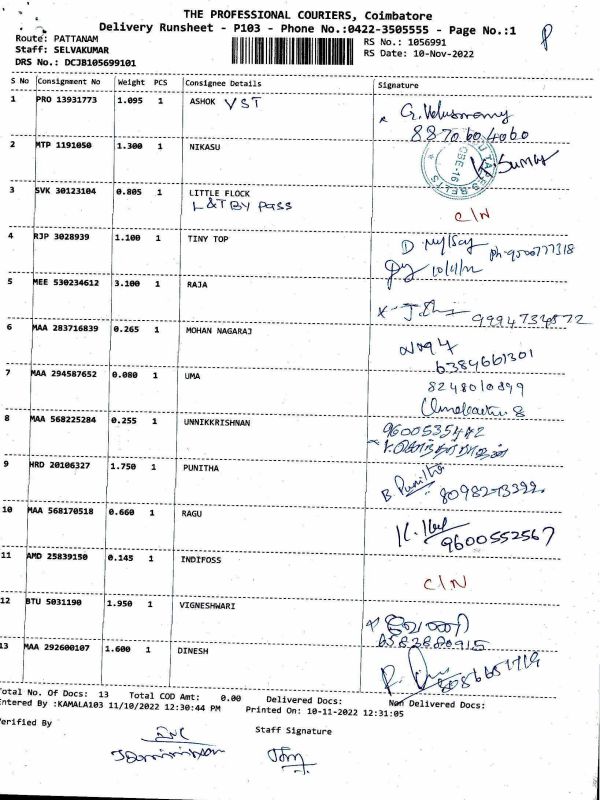 THE PROFESSIONAL COURIERS, Coimbatore
Delivery Runsheet - P103 - Phone No.:0422-3505555 - Page No.:1
Route: PATTANAM
RS No.: 1056991
Staff: SELVAKUMAR
RS Date: 10-Nov-2022
DRS No.: DCJB105699101
S No Consignment No Weight PCS Consignee Details Signature
1 PRO 13931773 1.095 1 ASHOK VST
8870604060
2 MTP 1191050 1.300 1 NIKASU
CBE-16
3 SVK 30123104 0.805 1 LITTLE FLOCK
L&T BY Pass
C/N
4 RJP 3028939 1.100 1 TINY TOP
ph-9500777318
10/11/22
5 MEE 530234612 3.100 1 RAJA
9994734872
6 MAA 283716839 0.265 1 MOHAN NAGARAJ
6384661301
7 MAA 294587652 0.080 1 UMA
8248010899
8 MAA 568225284 0.255 1 UNNIKKRISHNAN
9600535482
9 HRD 20106327 1.750 1 PUNITHA
B. Punitha
10 MAA 568170518 0.660 1 RAGU
9600552567
11 AMD 25839150 0.145 1 INDIFOSS
C/N
12 BTU 5031190 1.950 1 VIGNESHWARI
13 MAA 292600107 1.600 1 DINESH
Total No. Of Docs: 13 Total COD Amt: 0.00 Delivered Docs: Non Delivered Docs:
Entered By :KAMALA103 11/10/2022 12:30:44 PM Printed On: 10-11-2022 12:31:05
Verified By Staff Signature